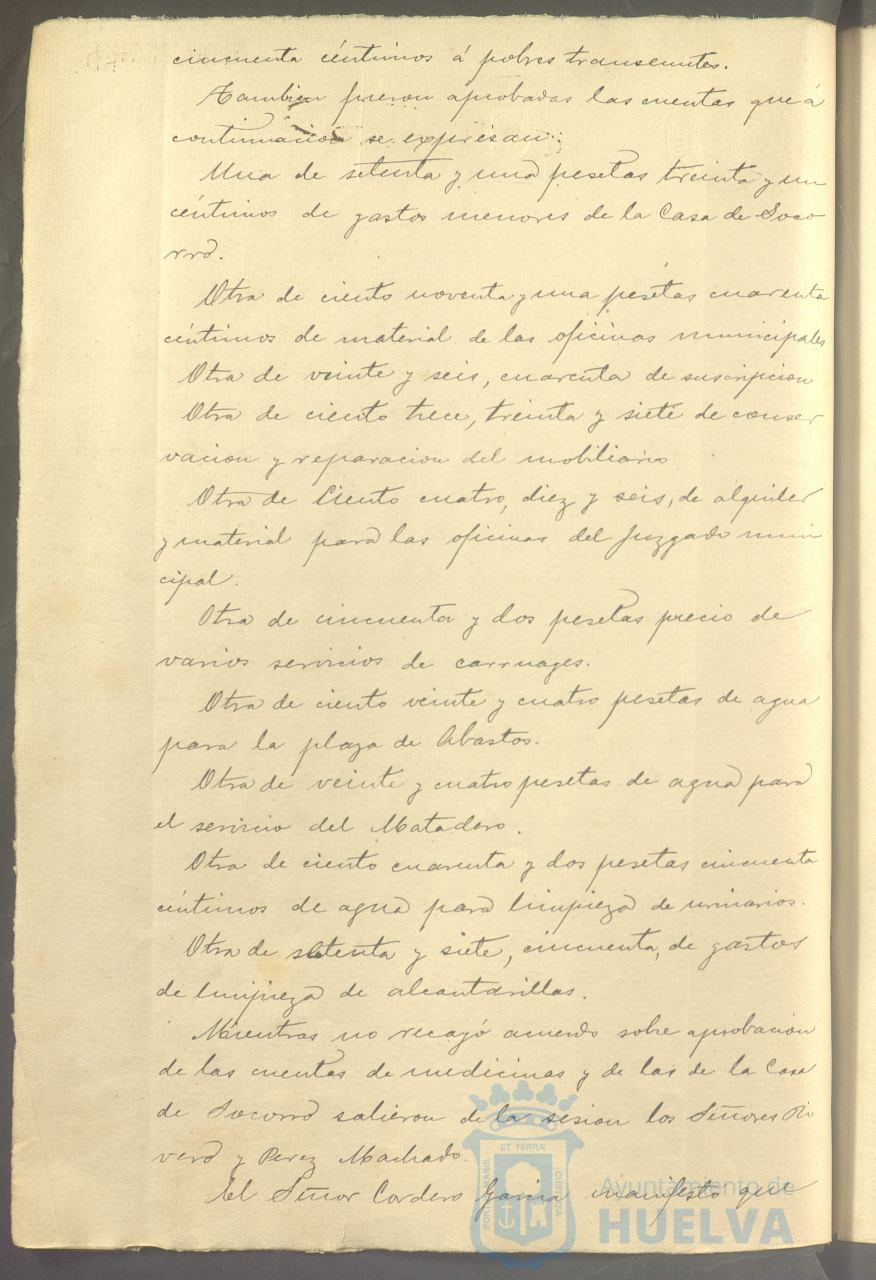 cincuenta céntimos á pobres transeuntes.
Tambien fueron aprobadas las cuentas que á
continuacion se expresan:
Una de setenta y una pesetas treinta y un
céntimos de gastos menores de la Casa de Soco-
rro.
Otra de ciento noventa y una pesetas cuarenta
céntimos de material de las oficinas municipales
Otra de veinte y seis, cuarenta de suscripcion
Otra de ciento trece, treinta y siete de conser
vacion y reparacion del mobiliario
Otra de Ciento cuatro, diez y seis, de alquiler
y material para las oficinas del Juzgado muni
cipal.
Otra de cincuenta y dos pesetas precio de
varios servicios de carruages.
Otra de ciento veinte y cuatro pesetas de agua
para la plaza de Abastos.
Otra de veinte y cuatro pesetas de agua para
el servicio del Matadero.
Otra de ciento cuarenta y dos pesetas cincuenta
céntimos de agua para limpieza de urinarios.
Otra de setenta y siete, cincuenta, de gastos
de limpieza de alcantarillas.
Mientras no recayó acuerdo sobre aprobacion
de las cuentas de medicinas y de las de la Casa
de Socorro salieron de la sesion los Señores Ri
vero y Perez Machado.
El Señor Cordero Garcia manifestó que
PORTUS MARIS ET TERRAE CUSTODIA
Ayuntamiento de
HUELVA